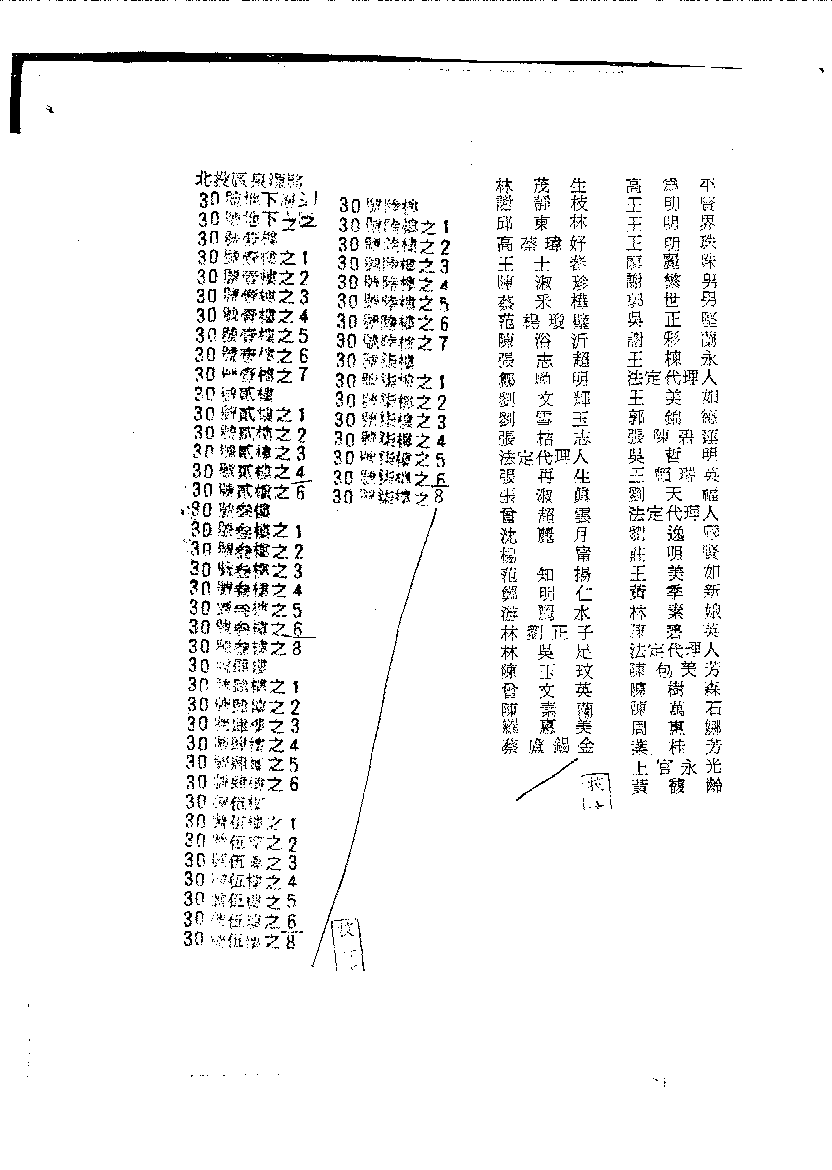 北投區泉源路
30號地下
30號地下之2
30號壹樓
30號壹樓之1
30號壹樓之2
30號壹樓之3
30號壹樓之4
30號壹樓之5
30號壹樓之6
30號壹樓之7
30號貳樓
30號貳樓之1
30號貳樓之2
30號貳樓之3
30號貳樓之4
30號貳樓之6
30號叁樓
30號叁樓之1
30號叁樓之2
30號叁樓之3
30號叁樓之4
30號叁樓之5
30號叁樓之6
30號叁樓之8
30號肆樓
30號肆樓之1
30號肆樓之2
30號肆樓之3
30號肆樓之4
30號肆樓之5
30號肆樓之6
30號伍樓
30號伍樓之1
30號伍樓之2
30號伍樓之3
30號伍樓之4
30號伍樓之5
30號伍樓之6
30號伍樓之8
30號陸樓
30號陸樓之1
30號陸樓之2
30號陸樓之3
30號陸樓之4
30號陸樓之5
30號陸樓之6
30號陸樓之7
30號柒樓
30號柒樓之1
30號柒樓之2
30號柒樓之3
30號柒樓之4
30號柒樓之5
30號柒樓之6
30號柒樓之8
林茂生
謝靜枝
邱東林
高蔡瑋好
王士
陳淑珍
蔡釆樺
范楊瓊
陳浴沂
張志超
鄭 明
劉文輝
劉雪玉
張 志
法定代理人
張再生
張淑眞
曾超雲
沈麗月
楊甯
范知揚
鄭明仁
游 水
林劉正子
林吳足
陳玉玟
曾文英
陳素蘭
羅惠美
蔡盧錫金
高 平
王明
王明界
王明珠
謝 男
郭世男
吳正
謝彩蘭
王棟永
法定代理人
王美如
郭錦
張陳碧蓮
吳哲明
王 瑞英
劉天福
法定代理人
劉逸
莊明賢
王美如
黃季新
林素娘
陳碧英
法定代理人
陳包美芳
陳樹森
陳萬石
周惠娜
葉桂芳
上官永光
黃馥齡